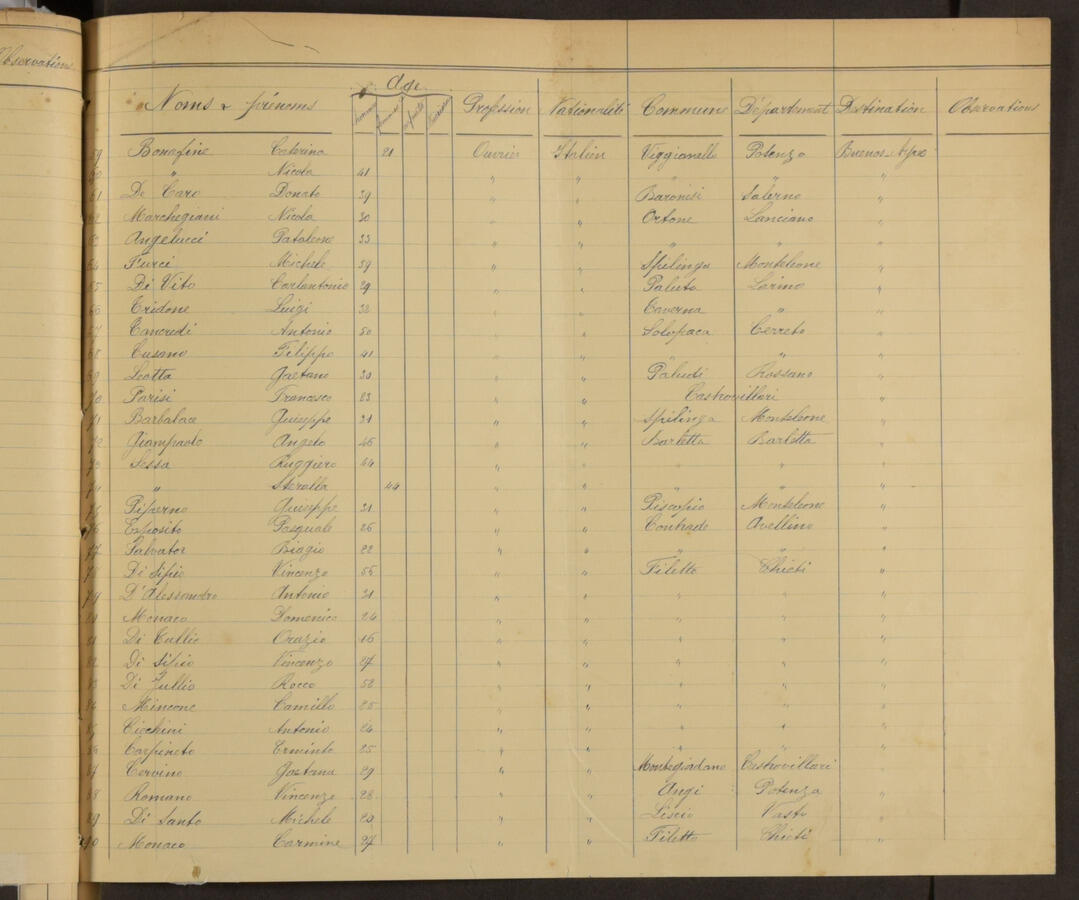 Observations
Age
Noms & prénoms Profession Nationalité Commune Départment Destination Observations
59 Bonafine Caterina 21 Ouvrier Italien Viggianello Potenza Buenos-Ayres
60 " Nicola 41 " " " " "
61 De Caro Donato 39 " " Baronisi Salerno "
62 Marchegiani Nicola 30 " " Ortone Lanciano "
63 Angelucci Pataleone 33 " " " " "
64 Furci Michele 39 " " Spilinga Monteleone "
65 Di Vito Carlantonio 29 " " Paluta Larino "
66 Tridone Luigi 32 " " Caverna " "
67 Cancredi Antonio 50 " " Solopaca Cerreto "
68 Cusano Filippo 41 " " " "
69 Leotta Gaetano 30 " " Paludi Rossano "
70 Parisi Francesco 23 " " Castrovillari "
71 Barbalace Guiseppe 31 " " Spilinga Monteleone "
72 Giampaolo Angelo 46 " " Barletta Barletta "
73 Sessa Ruggiero 44 " " " " "
74 " 44 " " " " "
75 Piperno Guiseppe 31 " " Piscopio Monteleone "
76 Esposito Pasquale 26 " " Contrado Avellino "
77 Salvator Biagio 22 " " " " "
78 Di Sipio Vincenzo 55 " " Filetto Chieti "
79 D'Alessandro Antonio 31 " " " " "
80 Monaco Domenico 24 " " " " "
81 Di Tullio Orazio 16 " " " " "
82 Di Sipio Vincenzo 27 " " " " "
83 Di Jullio Rocco 52 " " " " "
84 Mincone Camillo 25 " " " " "
85 Cicchini Antonio 24 " " " " "
86 Carpineto Erminto 25 " " " " "
87 Cervino Gaetana 29 " " Montegiordano Castrovillari "
88 Romano Vincenzo 28 " " Angi Potenza "
89 Di Santo Michele 20 " " Liscio Vasto "
90 Monaco Carmine 27 " " Filetto Chieti "